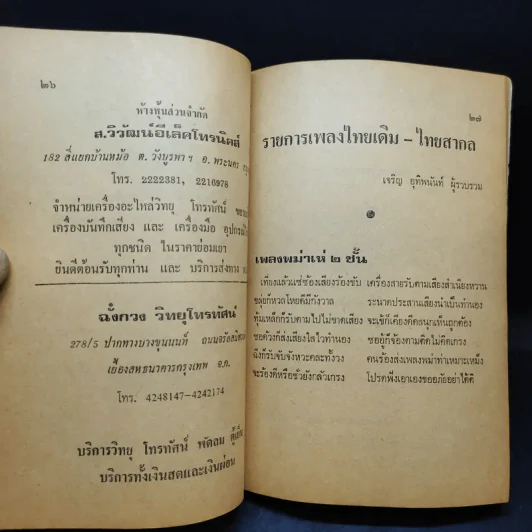 ๒๖
ห้างหุ้นส่วนจำกัด
ส.วิวัฒน์อีเล็คโทรนิคส์
182 สี่แยกบ้านหม้อ ต. วังบูรพาฯ อ. พระนคร
โทร. 2222381, 2216978
จำหน่ายเครื่องอะไหล่วิทยุ โทรทัศน์
เครื่องบันทึกเสียง และ เครื่องมือ
ทุกชนิด ในราคาย่อมเยา
ยินดีต้อนรับทุกท่าน และ บริการส่งทาง
ฉั่งกวง วิทยุโทรทัศน์
278/5 ปากทางบางขุนนนท์
เยื้องสหธนาคารกรุงเทพ จ.ก.
โทร. 4248147-4242174
บริการวิทยุ โทรทัศน์ พัดลม
บริการทั้งเงินสดและเงินผ่อน
๒๗
รายการเพลงไทยเดิม – ไทยสากล
เจริญ อุทิพนันท์ ผู้รวบรวม
เพลงพม่าเห่ ๒ ชั้น
เครื่องสายรับตามเสียงสำเนียงหวาน
ขลุ่ยก็หวลโหยดีมีกังวาล ระนาดประสานเสียงนำเป็นทำนอง
ทุ้มเหล็กก็รับตามไปไม่ขาดเสียง
ซอด้วงก็ส่งเสียงใสไวทำนอง ซออู้ก็จ้องตามติดไม่คิดเกรง
ฉิ่งก็รับจับจังหวะคละทั้งวง คนร้องส่งเพลงพม่าเหมาะเหม็ง
จะร้องดีหรือชั่วยังกลัวเกรง โปรดฟังเอาเองขออภัยอย่าได้ติ